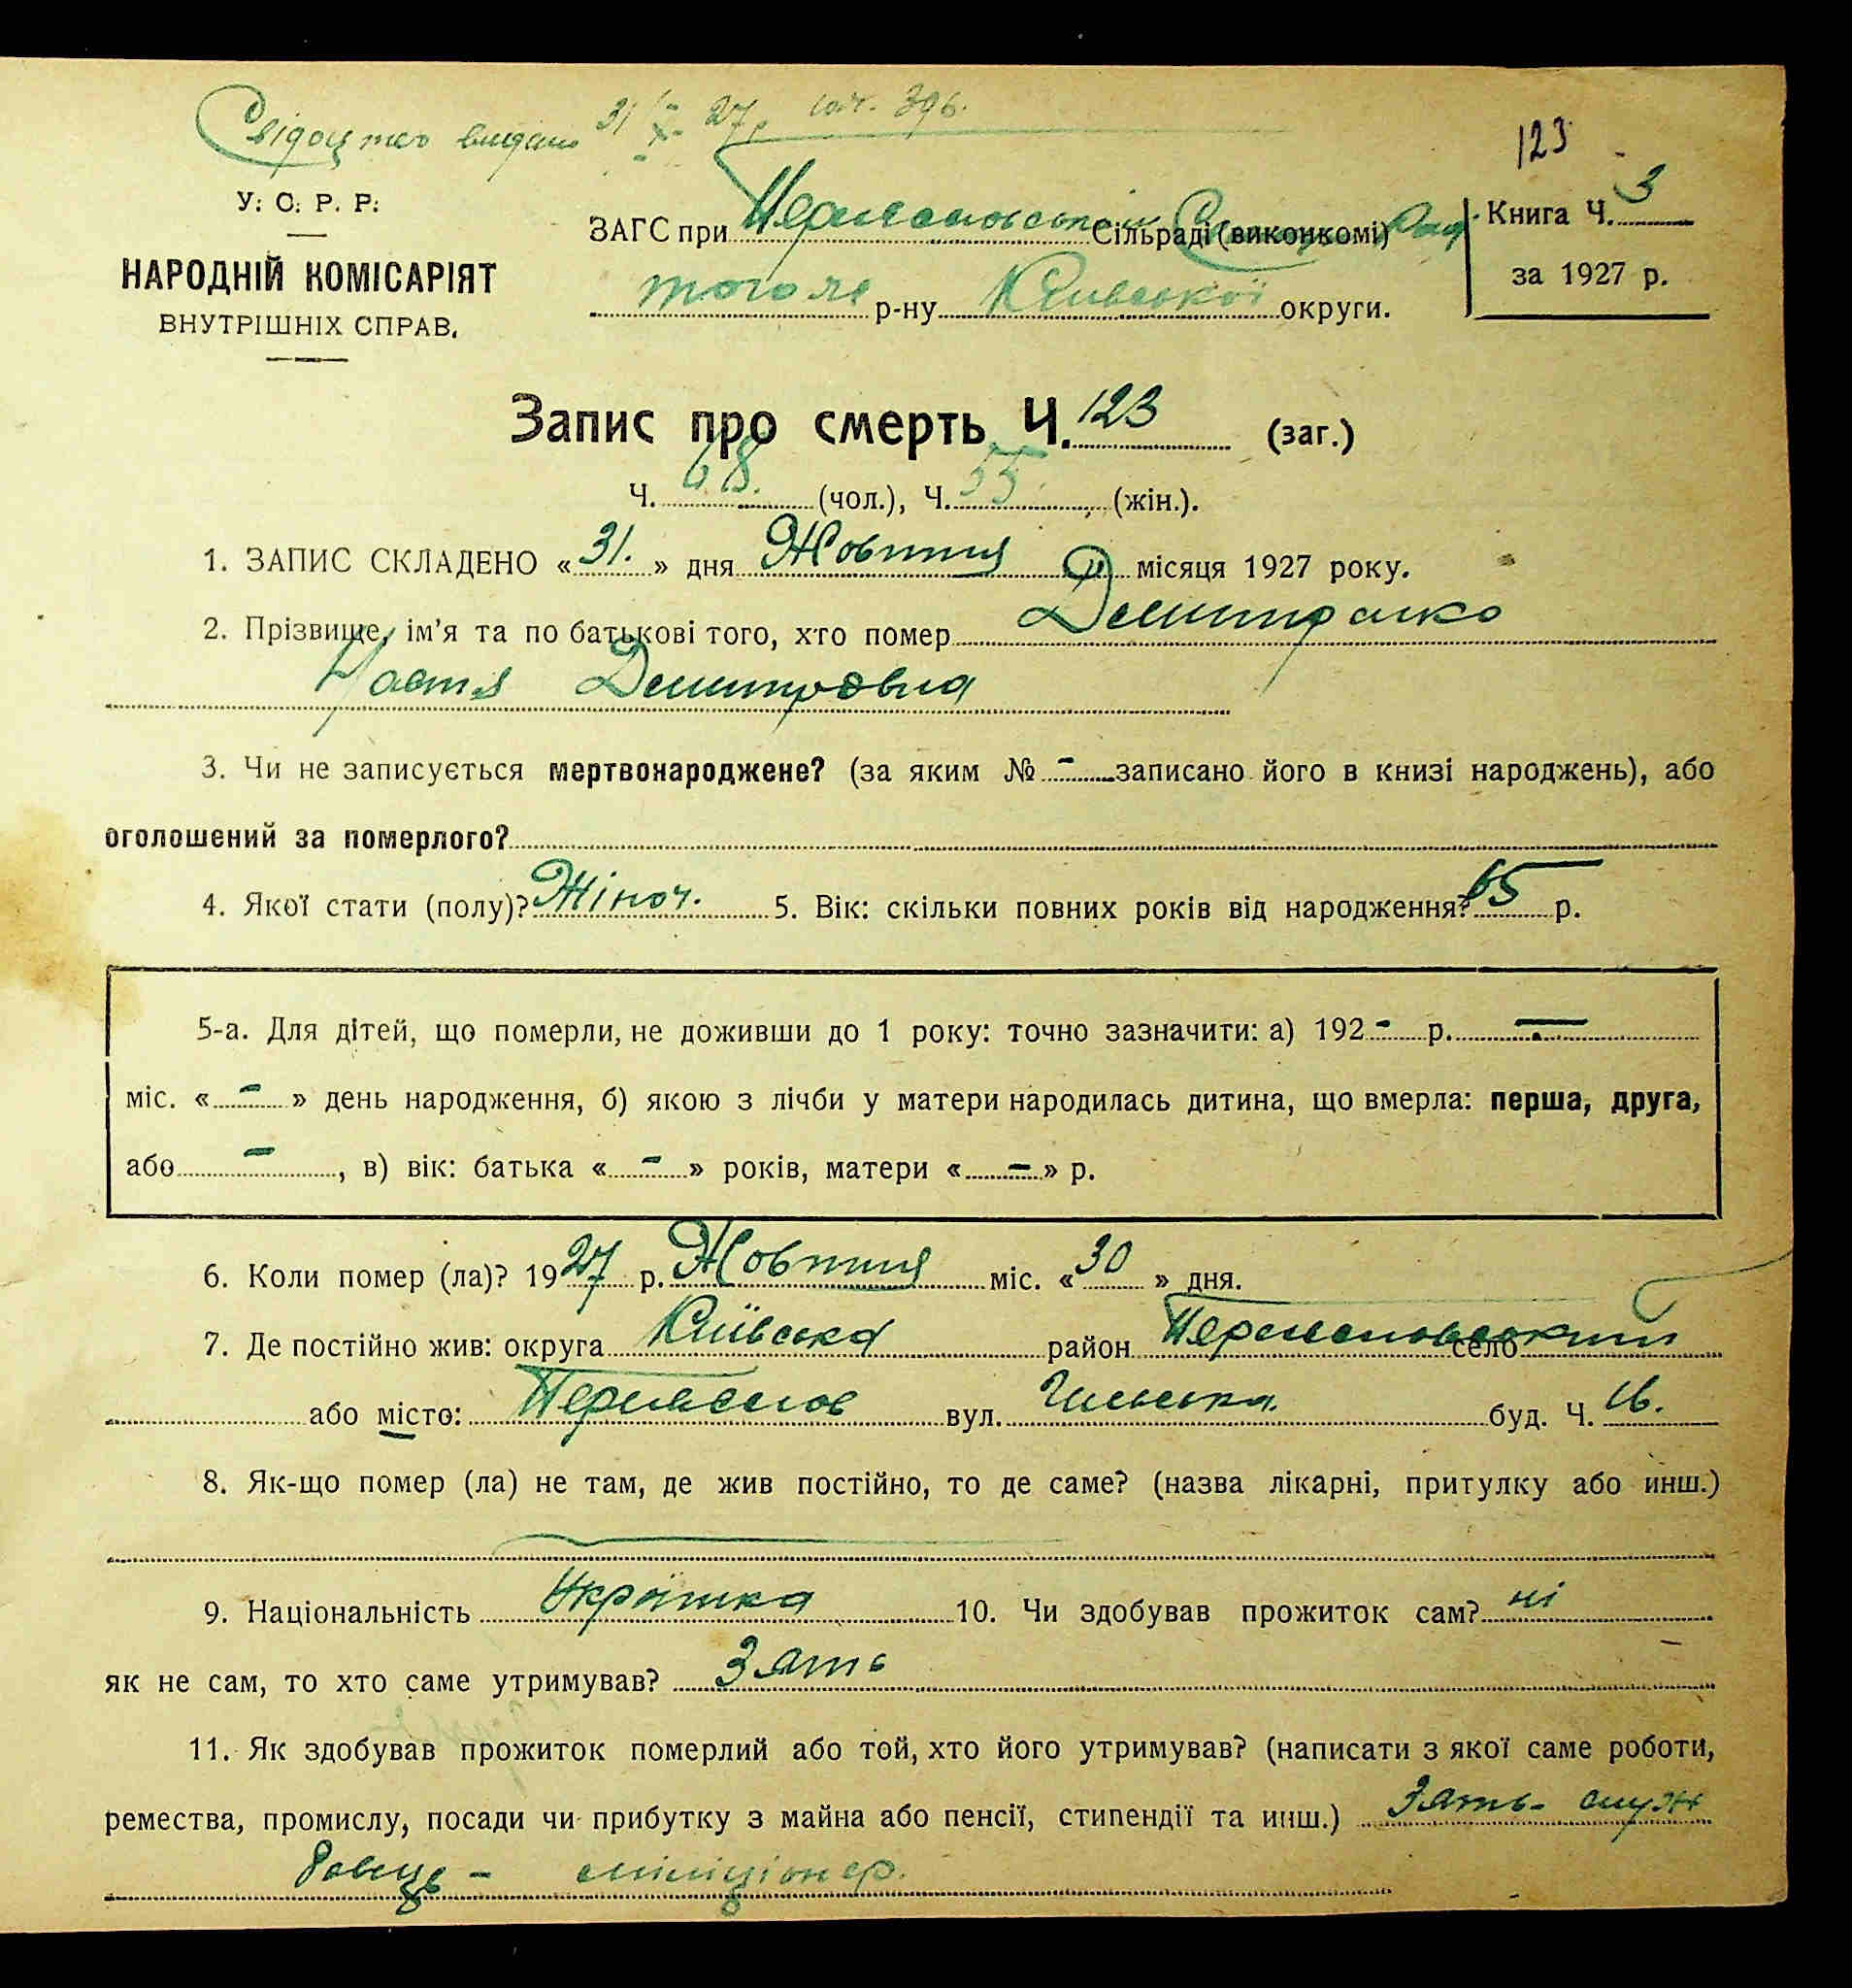 Свідоцтво видано 31/X-27р. 396.
123
У. С. Р. Р.
НАРОДНІЙ КОМІСАРІЯТ
ВНУТРІШНІХ СПРАВ.
ЗАГС при Сільраді (виконкомі)
того ж р-ну Київської округи.
Книга Ч. 3
за 1927 р.
Запис про смерть Ч. 123 (заг.)
Ч. 68. (чол.), Ч. 55 (жін.).
1. ЗАПИС СКЛАДЕНО «31.» дня Жовтня місяця 1927 року.
2. Прізвище, ім'я та по батькові того, хто помер Демитрашко
Настя Демитровна
3. Чи не записується мертвонароджене? (за яким № - записано його в книзі народжень), або
оголошений за померлого?
4. Якої стати (полу)? Жіноч. 5. Вік: скільки повних років від народження? 65 р.
5-а. Для дітей, що померли, не доживши до 1 року: точно зазначити: а) 192 - р. -
міс. « - » день народження, б) якою з лічби у матери народилась дитина, що вмерла: перша, друга,
або -, в) вік: батька « - » років, матери « - » р.
6. Коли помер (ла)? 1927 р. Жовтня міс. «30» дня.
7. Де постійно жив: округа Київська район Переяславський село
або місто: Переяслов вул. буд. Ч. 16.
8. Як-що помер (ла) не там, де жив постійно, то де саме? (назва лікарні, притулку або инш.)
9. Національність Украінка 10. Чи здобував прожиток сам? ні
як не сам, то хто саме утримував? Зять
11. Як здобував прожиток померлий або той, хто його утримував? (написати з якої саме роботи,
ремества, промислу, посади чи прибутку з майна або пенсії, стипендії та инш.) Зять - служ
бовець - міліціонер.